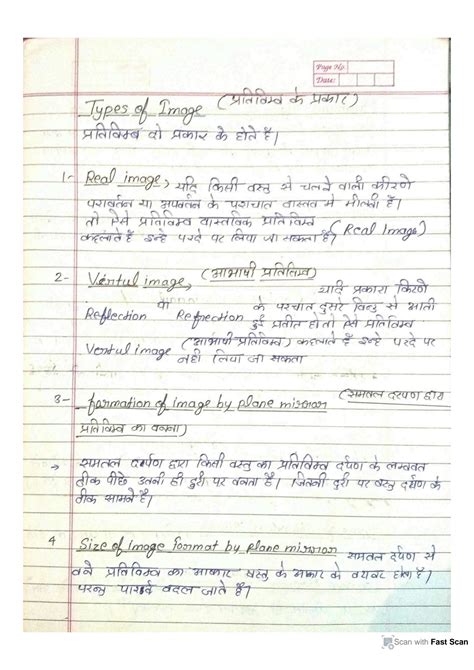 Page No.
Date:
Types of Image (प्रतिविम्ब के प्रकार)
प्रतिविम्ब दो प्रकार के होते है।
1- Real image, यदि किसी वस्तु से चलने वाली कीरणे
परावर्तन या अपवर्तन के पश्चात वास्तव मे मीलती है।
तो ऐसे प्रतिविम्ब वास्तविक प्रतिविम्ब (Real Image)
कहलाते है इन्हे परदे पर लिया जा सकता है।
2- Ventul image, (आभाषी प्रतिविम्ब)
यदि प्रकारा किरणे
Reflection या Refrection के पश्चात दुसरे विन्दु से आती
हुई प्रतीत हो तो ऐसे प्रतिविम्ब
Ventul image (आभाषी प्रतिविम्ब) कहलाते है इन्हे परदे पर
नही लिया जा सकता
3- formation of image by plane mirror (समतल दरपण द्वारा
प्रतिविम्ब का वनना)
→ समतल दर्पण द्वारा किसी वस्तु का प्रतिविम्ब दर्पण के लम्बवत
ठीक पीछे उतनी ही दुरी पर वनता है। जितनी दुरी पर वस्तु दर्पण के
ठीक सामने है।
4 Size of image format by plane mirror समतल दर्पण से
वने प्रतिविम्ब का आकार वस्तु के आकार के वरावर होता है।
परन्तु पार्श्व वदल जाते है।
Scan with Fast Scan